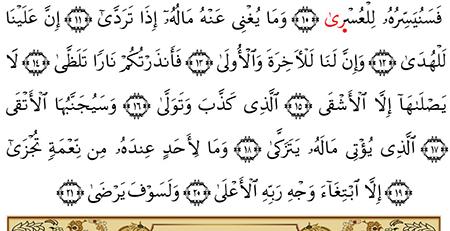 فَسَنُيَسِّرُهُۥ لِلْعُسْرِىٰ ﴿١٠﴾ وَمَا يُغْنِى عَنْهُ مَالُهُۥٓ إِذَا تَرَدَّىٰٓ ﴿١١﴾ إِنَّ عَلَيْنَا
لَلْهُدَىٰ ﴿١٢﴾ وَإِنَّ لَنَا لَلْأَخِرَةَ وَٱلْأُولَىٰ ﴿١٣﴾ فَأَنذَرْتُكُمْ نَارًا تَلَظَّىٰ ﴿١٤﴾ لَا
يَصْلَىٰهَآ إِلَّا ٱلْأَشْقَى ﴿١٥﴾ ٱلَّذِى كَذَّبَ وَتَوَلَّىٰ ﴿١٦﴾ وَسَيُجَنَّبُهَا ٱلْأَتْقَى
﴿١٧﴾ ٱلَّذِى يُؤْتِى مَالَهُۥ يَتَزَكَّىٰ ﴿١٨﴾ وَمَا لِأَحَدٍ عِندَهُۥ مِن نِّعْمَةٍ تُجْزَىٰٓ
﴿١٩﴾ إِلَّا ٱبْتِغَآءَ وَجْهِ رَبِّهِ ٱلْأَعْلَىٰ ﴿٢٠﴾ وَلَسَوْفَ يَرْضَىٰ ﴿٢١﴾